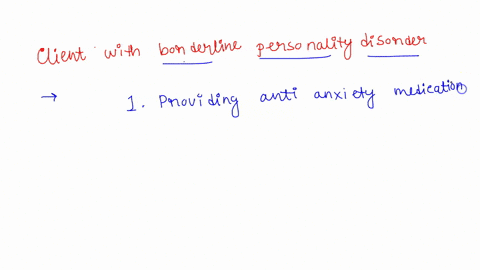 Client with borderline personality disorder
→ 1. Providing anti anxiety medication